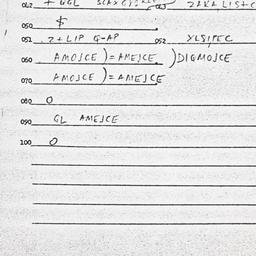 050 $
051 Z+LIP G-AP 052 YLSITEC
060 AMOJCE ) = AMEJCE ) DIGMOJCE
070 AMOJCE ) = AMEJCE
080 O
090 GL AMEJCE
100 O